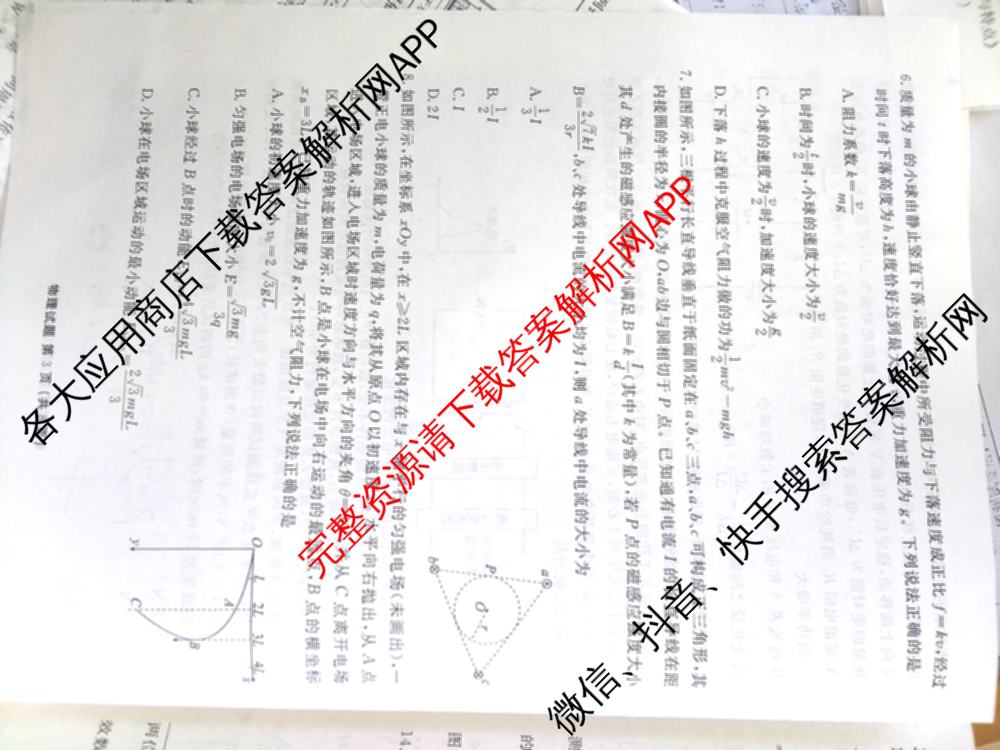 6.质量为m的小球由静止竖直下落,运动
所受阻力与下落速度成正比f=kv,经过
时间t时下落高度为h,速度恰好达到最大
重力加速度为g。下列说法正确的是
A.阻力系数k=v/mg
B.时间为t/2时,小球的速度大小为v/2
C.小球的速度为v/2时,加速度大小为g/2
D.下落h过程中克服空气阻力做的功为1/2mv²-mgh
7.如图所示,三
平行长直导线垂直于纸面固定在a、b、c三点,a、b、c可构
三角形,其
内接圆的半径为
为O,ab边与圆相切于P点。已知通有电流I的
导线在距
其d处产生的磁感应
满足B=k I/d(其中k为常量),若P点的磁感应强度大小
B=2√7kI/3r,b、c处导线中电流
均为I,则a处导线中电流的大小为
A.1/3I
B.1/2I
C.I
D.2I
a
b
c
P
O
r
8.如图所示,在坐标系xOy中,在x≥2L区域内存在与x
的匀强电场(未画出),一
正电小球的质量为m,电荷量为q,将其从原点O以初速
水平向右抛出,从A点
场区域,进入电场区域时速度方向与水平方向的夹角θ=
从C点离开电场
区
的轨迹如图所示,B点是小球在电场中向右运动的最
,B点的横坐标
xB=3L
重力加速度为g,不计空气阻力,下列说法正确的是
A.小球的
v₀=2√3gL
B.匀强电场的电场
小E=√3mg/3q
C.小球经过B点时的动能
√3mgL/3
D.小球在电场区域运动的最小动能
=2√3mgL/3
O
L
2L
3L
4L
x
A
B
C
y
物理试题 第3页(共
各大应用商店下载答案解析网APP
完整资源请下载答案解析网APP
微信、抖音、快手搜索答案解析网